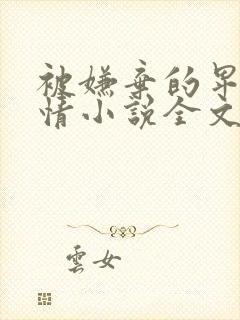 被嫌棄的早
情小說全文
雲女